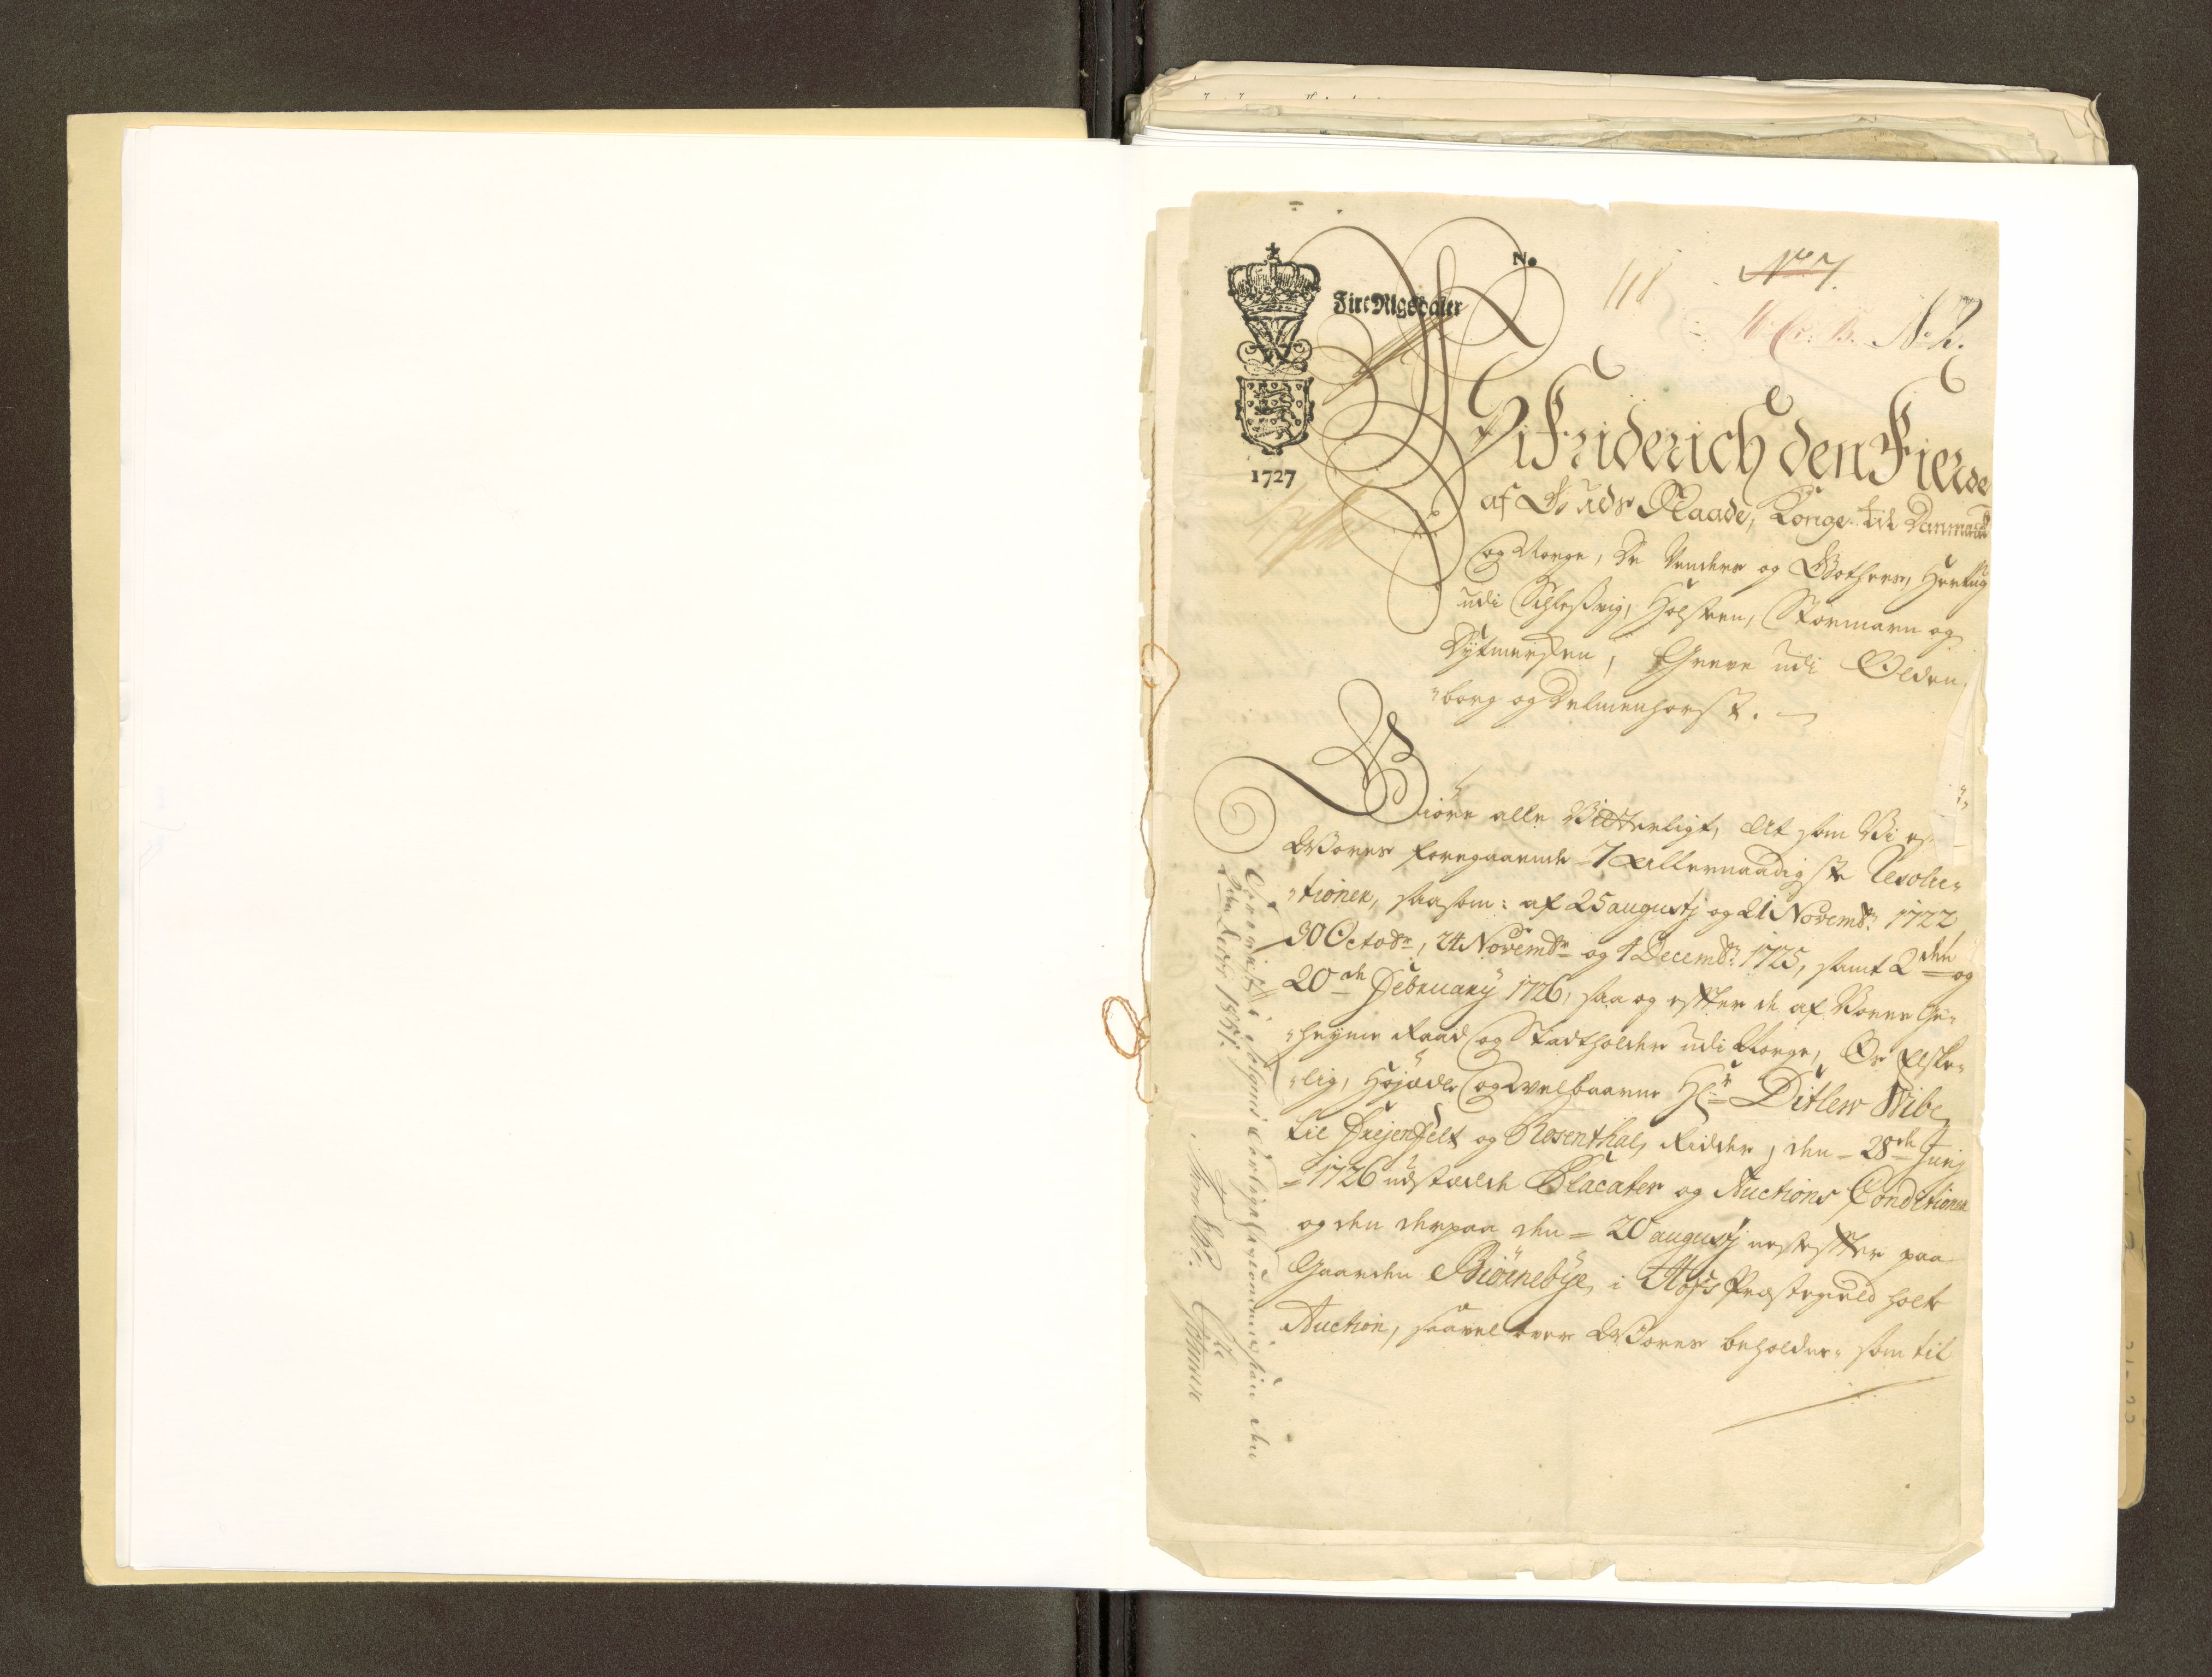 N.
Fire Rigsdaler
118
No 7.
N. 7.
1727
Vi Friderich den Fierde
af Guds Naade, Konge til Danmark
og Norge, De Venders og Gothers, Hertug
udi Schleßvig, Holsten, Stormarn og
Dytmersken, Greve udi Olden-
"borg og Delmenhorst.
Giöre alle Vitterligt, At som Vi ef-
Vores foregaaende 7 Allernaadigste Resolu-
"tioner, saasom: af 25 augustj og 21 Novembr: 1722,
30 Octobr, 24 Novembr og 4 Decembr: 1725, samt 2den og
20de February 1726, saa og effter de af Vores Ge-
"heyme Raad og Stadtholder udi Norge, Os Elske-
"lig, Höjædle og velbaarne Hr Ditlew Wibe
til Frejenfelt og Rosenthal, Ridder, den 28de Junj
1726 udstædde Placater og Auctions Conditioner
og den derpaa den 20 augustj nestefter paa
Gaarden Biörnebye, i Aaß Præstegield holte
Auction, saavel over Vores beholdne, som til